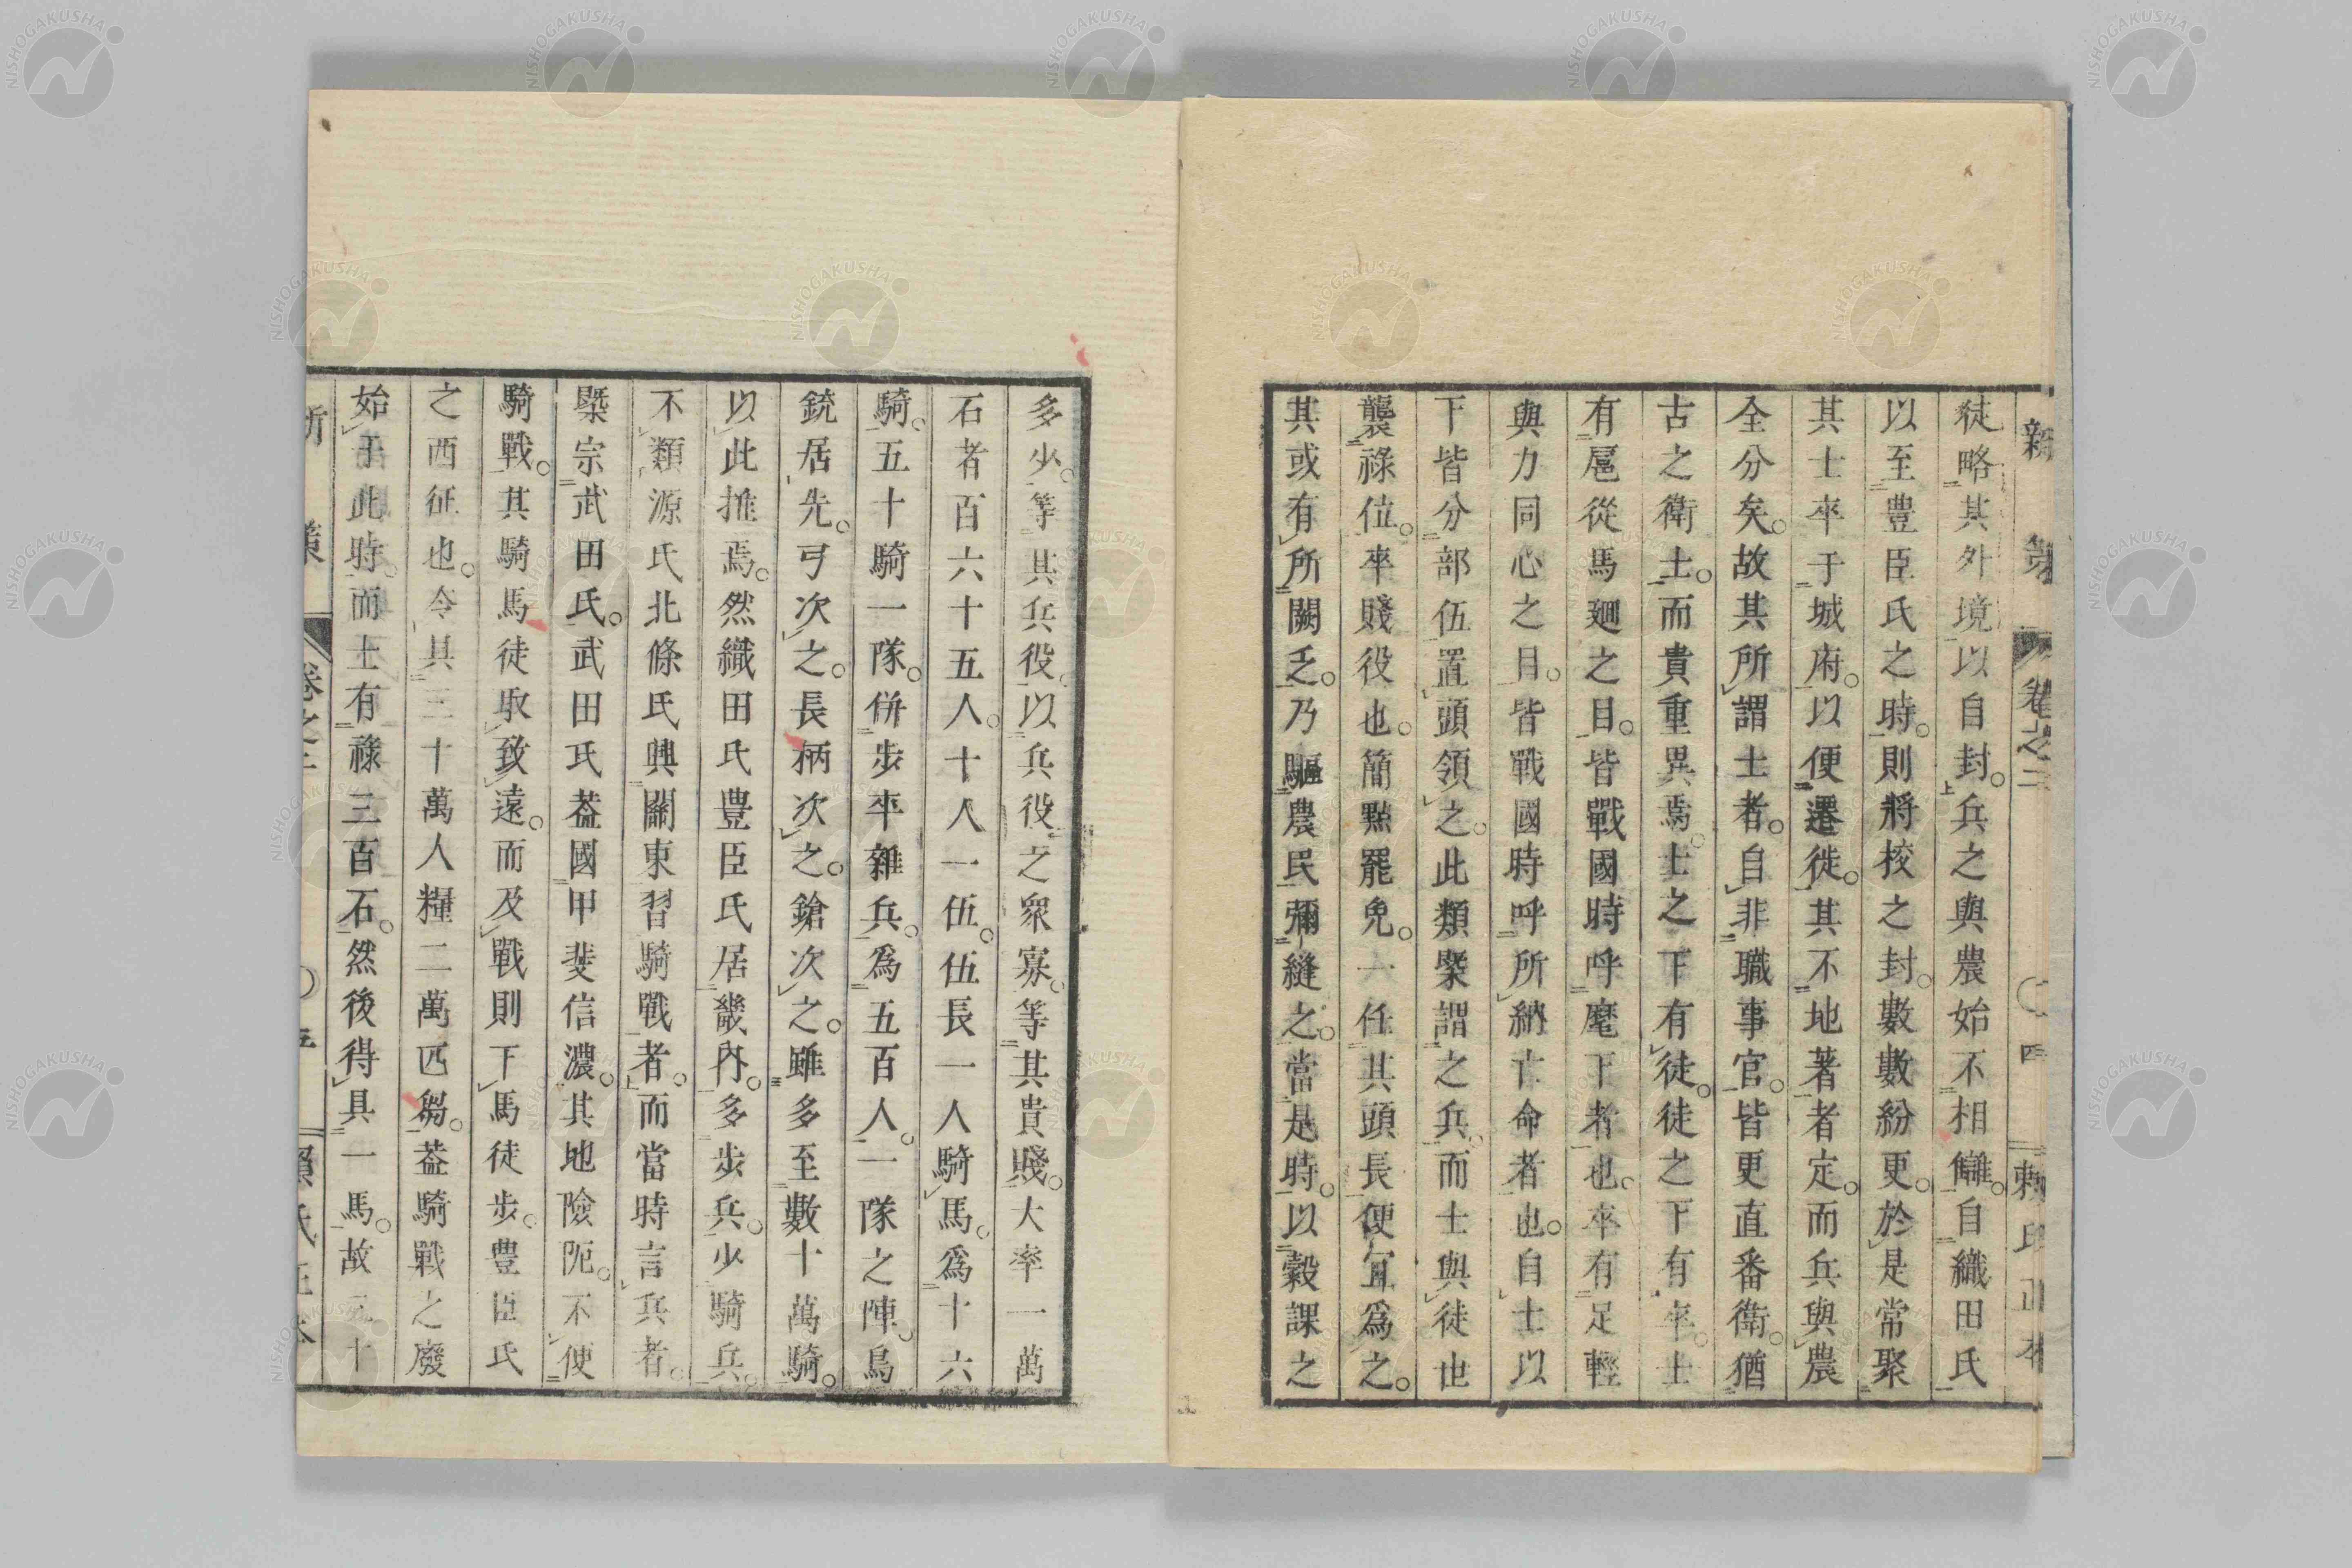 新策 卷之二 〇四 賴氏正本
徒略其外境以自封。兵之與農始不相雝。自織田氏
以至豊臣氏之時。則將校之封。數數紛更。於是常聚
其士卒于城府。以便遷徙。其不地著者定。而兵與農
全分矣。故其所謂士者。自非職事官。皆更直番衛。猶
古之衛士。而貴重異焉。士之下有徒。徒之下有卒。士
有扈從馬廻之目。皆戰國時呼麾下者也。卒有足輕
與力同心之目。皆戰國時呼所納亡命者也。自士以
下皆分部伍。置頭領之。此類槩謂之兵。而士與徒也
襲祿位。卒賤役也。簡點罷免。一任其頭長便宜爲之。
其或有所闕乏。乃驅農民彌縫之。當是時。以穀課之
多少。等其兵役。以兵役之衆寡。等其貴賤。大率一萬
石者百六十五人。十人一伍。伍長一人騎馬。爲十六
騎。五十騎一隊。併步卒雜兵。爲五百人。一隊之陣。鳥
銃居先。弓次之。長柄次之。鎗次之。雖多至數十萬騎。
以此推焉。然織田氏豊臣氏居畿內。多步兵。少騎兵。
不類源氏北條氏興關東習騎戰者。而當時言兵者。
槩宗武田氏。武田氏葢國甲斐信濃。其地險阨。不便
騎戰。其騎馬徒取致遠。而及戰則下馬徒步。豊臣氏
之西征也。令具三十萬人糧二萬匹芻。葢騎戰之廢
始于此時。而士有祿三百石。然後得具一馬。故五十
新策 卷之二 〇五 賴氏正本
NISHOGAKUSHA